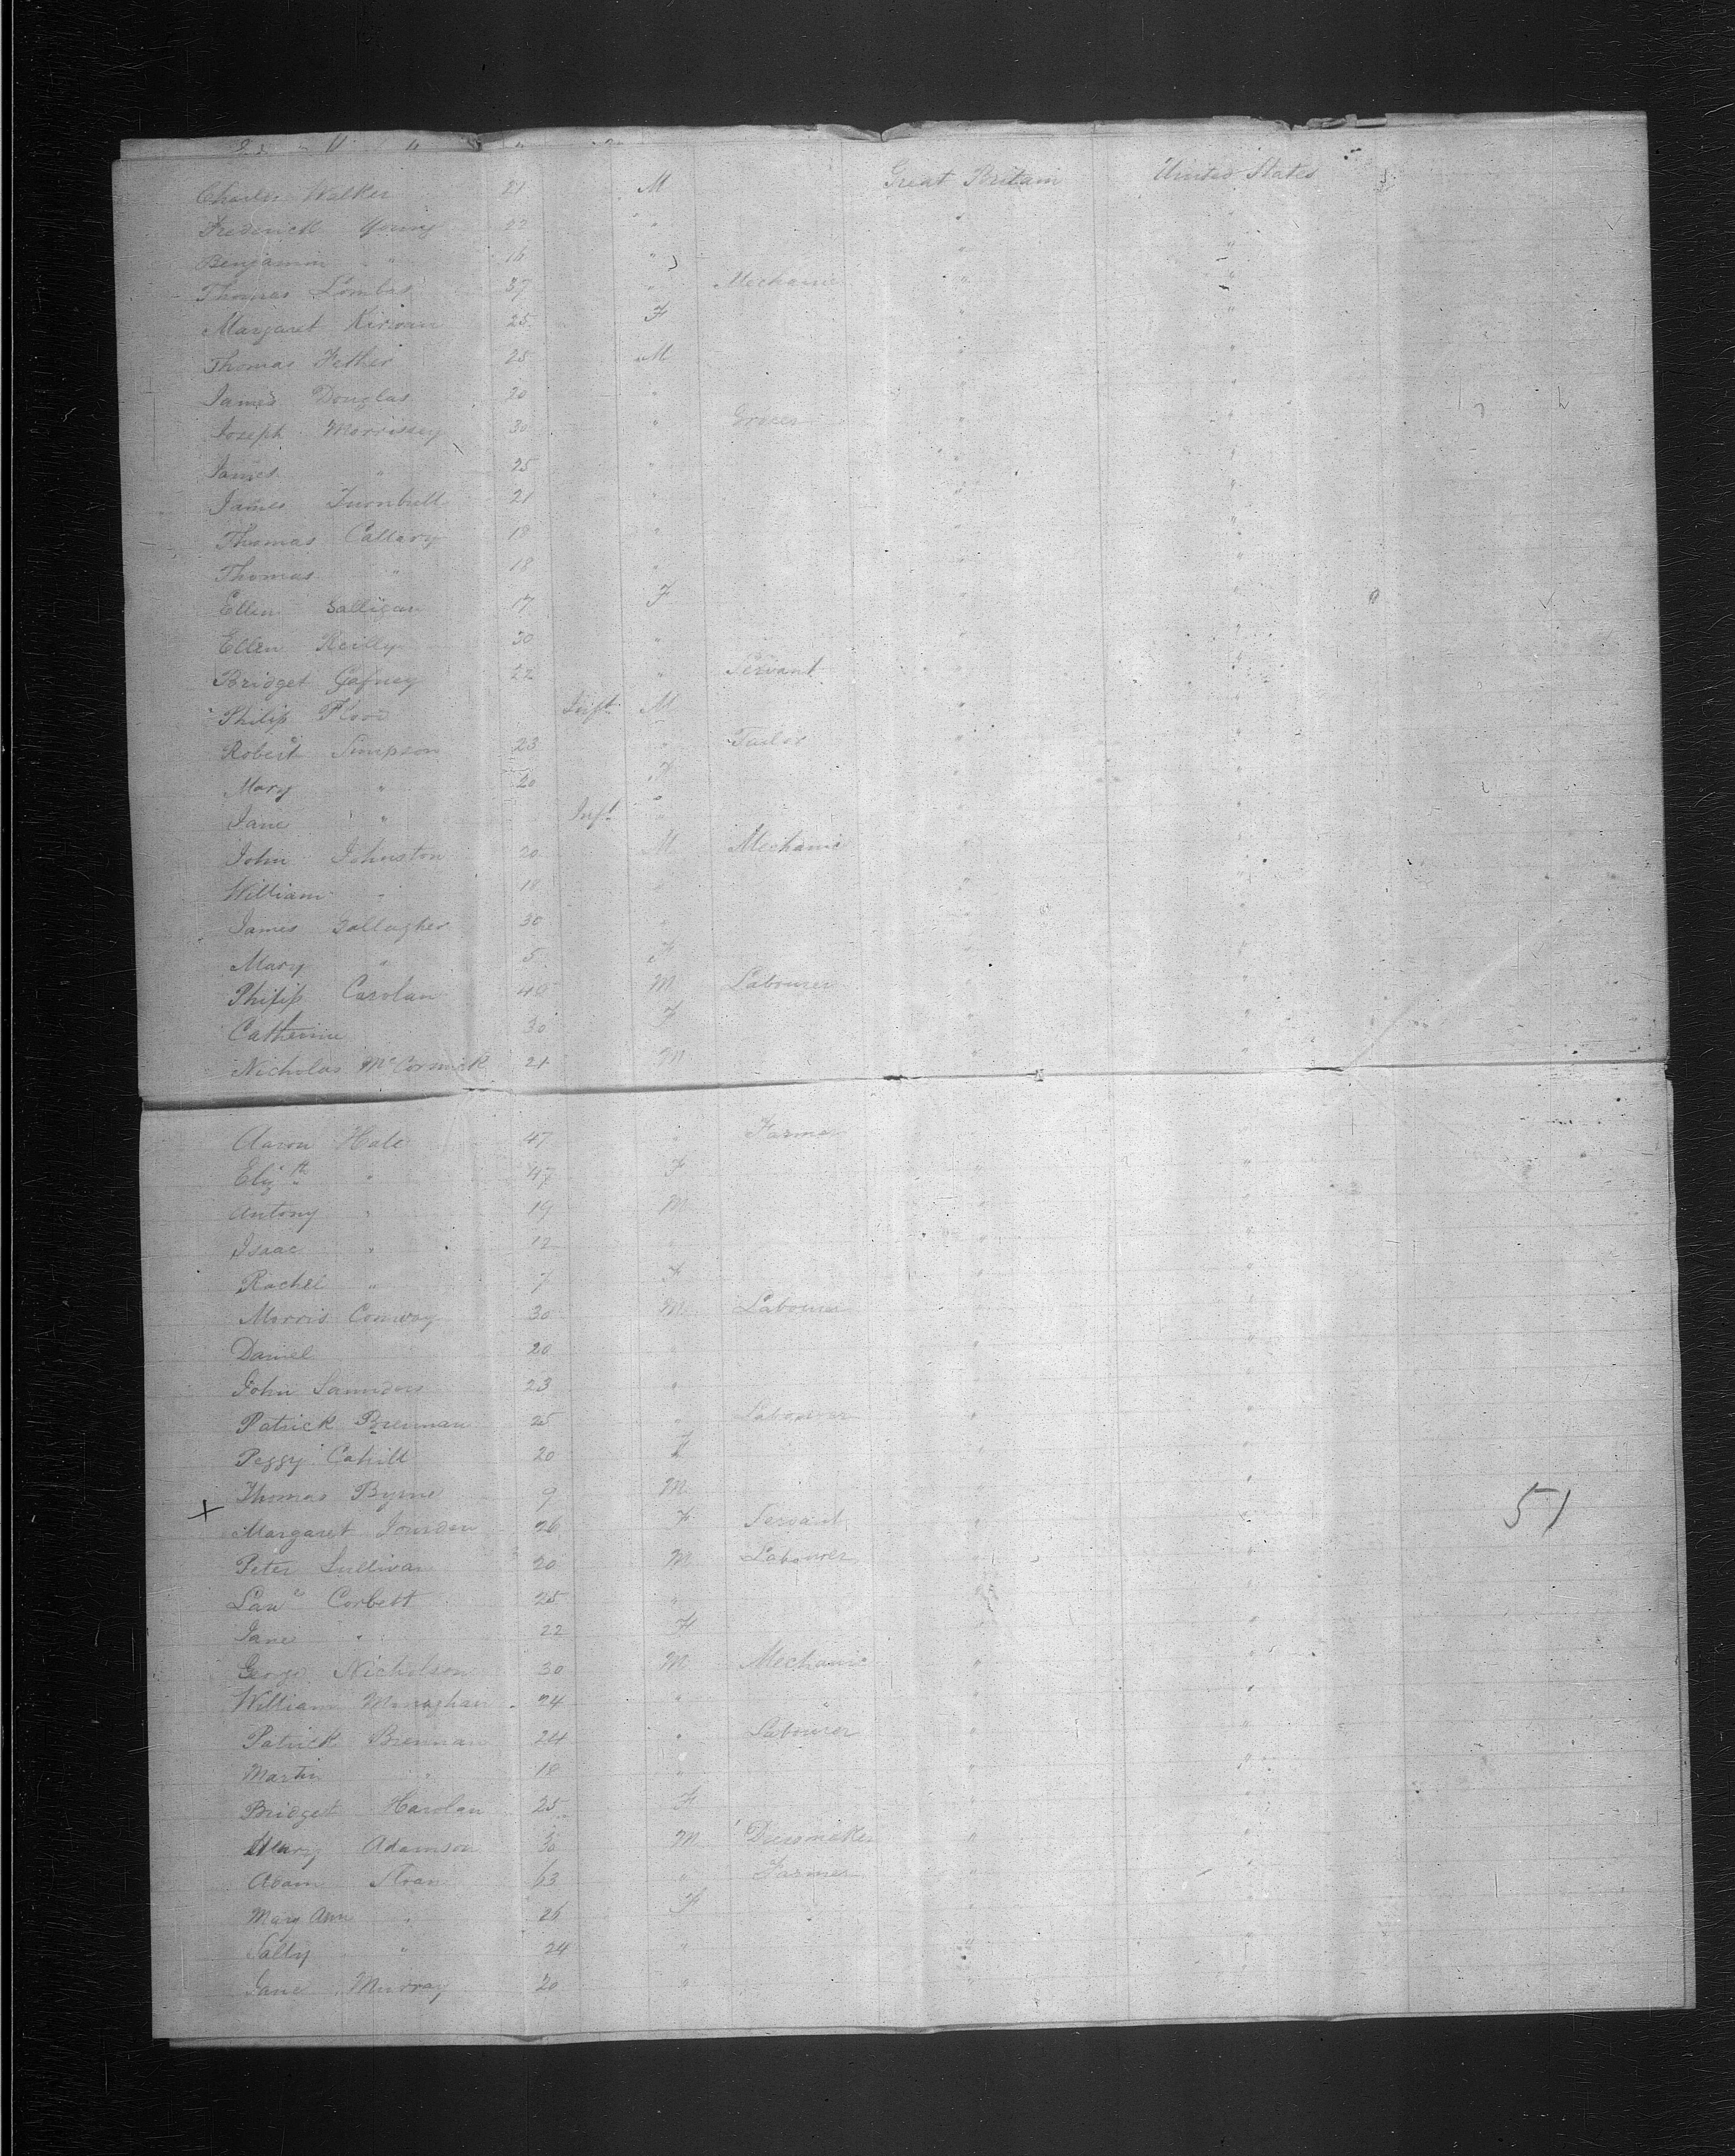 Charles Walker 21 M Great Britain United States
Frederick Young 22 " " "
Benjamin " 16 " " "
Thomas Lombas 37 " Mechanic " "
Margaret Kirwan 25 F " "
Thomas Fether 25 M " "
James Douglas 20 " " "
Joseph Morrissey 30 " Grocer " "
James " 25 " " "
James Turnbull 21 " " "
Thomas Callary 18 " " "
Thomas " 18 " " "
Ellen Galligan 17 F " "
Ellen Reilly 30 " " "
Bridget Gafney 22 " Servant " "
Philip Flood Inft M " "
Robert Simpson 23 " Tailor " "
Mary " 20 F " "
Jane " Inft " " "
John Johnston 20 M Mechanic " "
William " 18 " " "
James Gallagher 30 " " "
Mary " 5 F " "
Philip Carolan 40 M Labourer " "
Catherine 30 F " "
Nicholas McCormick 21 M " "
Aaron Hale 47 " Farmer
Elizth " 47 F " "
Antony " 19 M " "
Isaac " 12 " "
Rachel " 7 F " "
Morris Conway 30 M Labourer
Daniel 20 " " "
John Saunders 23 " "
Patrick Brennan 25 " Labourer " "
Peggy Cahill 20 F " "
Thomas Byrne 9 M " "
+ Margaret Jourdan 26 F Servant " " 51
Peter Sullivan 20 M Labourer " "
Lawe Corbett 25 " " "
Jane " 22 F " "
George Nicholson 30 M Mechanic " "
William Monaghan 24 " " "
Patrick Brennan 24 " Labourer " "
Martin " 18 " " "
Bridget Harolan 25 F " "
Adamson 30 M Dressmaker " "
Adam Sloan 63 " Farmer " "
Mary Ann " 26 F " "
Sally " 24 " " "
Jane Murray 20 " "